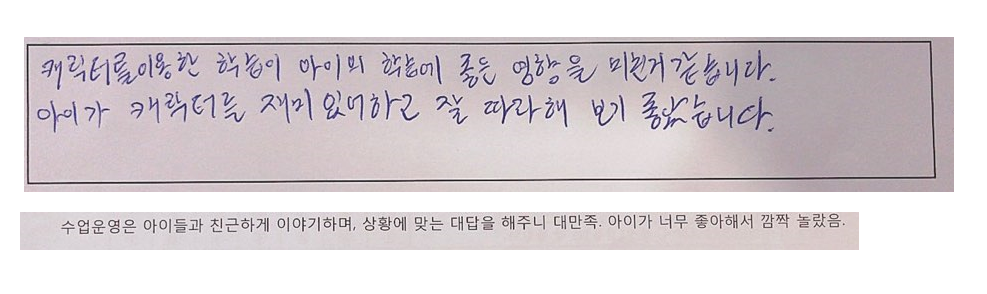 캐릭터를이용한 학습이 아이의 학습에 좋은 영향을 미친거같습니다.
아이가 캐릭터를 재미있어하고 잘 따라해 보기 좋았습니다.
수업운영은 아이들과 친근하게 이야기하며, 상황에 맞는 대답을 해주니 대만족. 아이가 너무 좋아해서 깜짝 놀랐음.